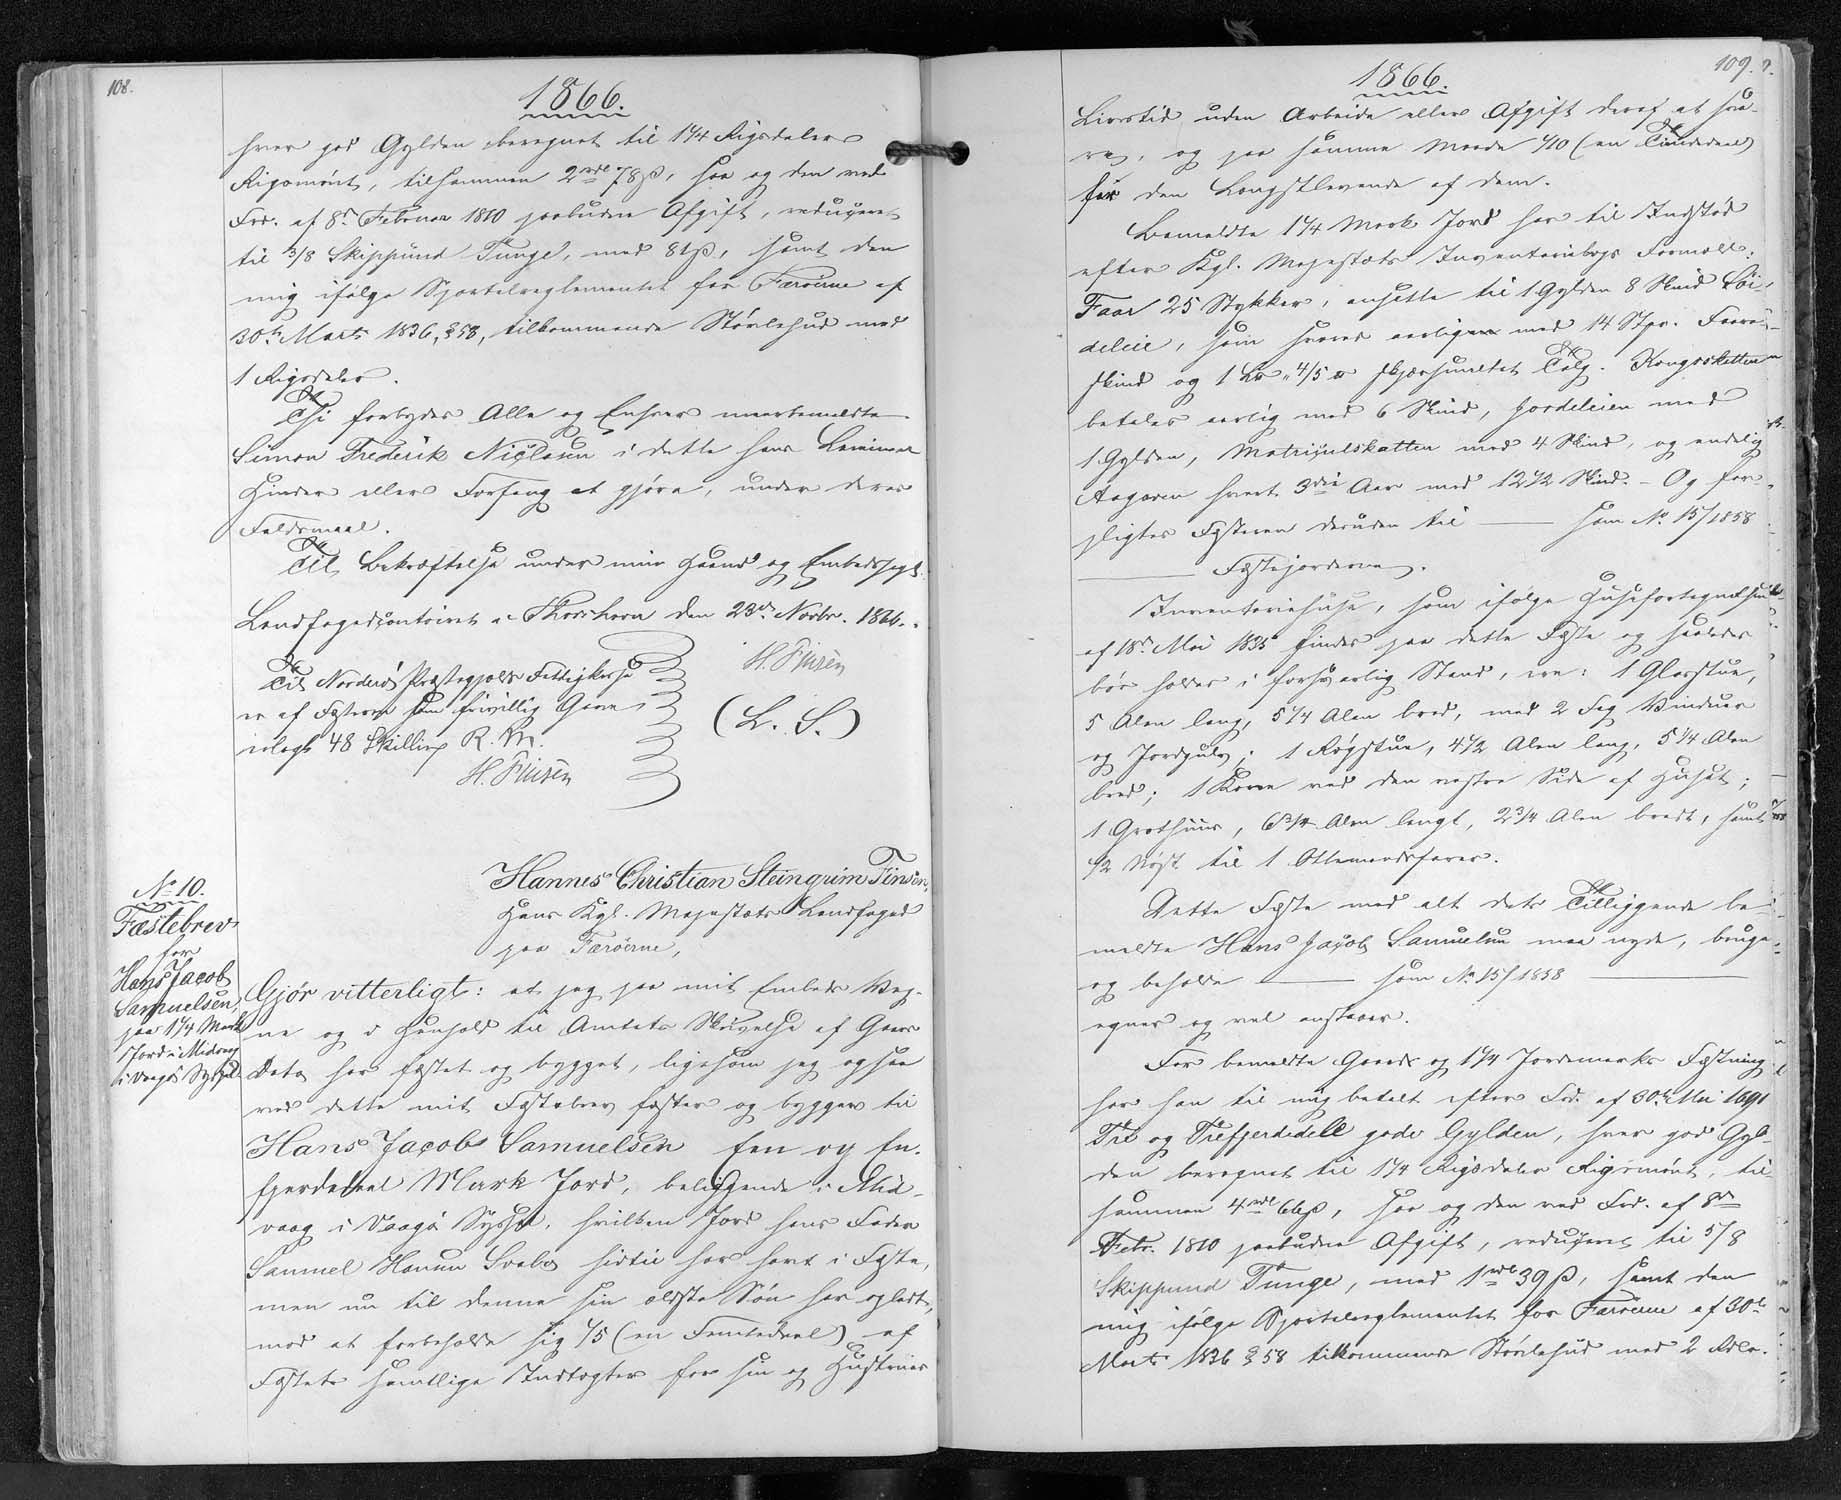 108.
1866.
hver god Gylden beregnet til 1 1/4 Rigsdaler
Rigsmønt, tilsammen 2 rdl 78 β, saa og den ved
Frd. af 8de Februar 1810 paabudne Afgift, reduceret
til 3/8 Skippund Tunge, med 81 β, samt den
mig ifølge Sportelreglementet for Færøerne af
30te Marts 1836, § 58, tilkommende Støvlehud med
1 Rigsdaler.
Thi forbydes Alle og Enhver meerbemeldte
Simon Frederik Niclasen i dette hans
Hinder eller Forfang at gjøre, under deres
Faldsmaal.
Til Bekræftelse under min Haand og Embedssegl.
Landfogedcontoiret i Thorshavn den 23de Novbr. 1866.
H. Finsen
(L. S.)
Til Norderø Præstegjelds Fattigkasse
er af Fæsteren som frivillig Gave
erlagt 48 Skilling R. M.
H. Finsen
No 10.
Fæstebrev
for
Hans Jacob
Samuelsen,
paa 1 1/4 Mark
Jord i Midvaag
i Vaagø Syssel.
Hannes Christian Steingrim Finsen,
Hans Kgl. Majestæts Landfoged
paa Færøerne,
Gjør vitterligt: at jeg paa mit Embeds Veg-
ne og i Henhold til Amtets Skrivelse af Gaars
Dato har fæstet og bygget, ligesom jeg ogsaa
ved dette mit Fæstebrev fæster og bygger til
Hans Jacob Samuelsen Een og En-
fjerdedeel Mark Jord, beliggende i Mid-
vaag i Vaagø Syssel, hvilken Jord hans Fader
Samuel Hansen hidtil har havt i Fæste,
men nu til denne sin ældste Søn har opladt,
mod at forbeholde sig 1/5 (en Femtedeel) af
Fæstets samtlige Indtægter for sin og Hustrues
109.
1866.
Livstid uden Arbeide eller Afgift deraf at sva-
re, og paa samme Maade 1/10 (en Tiendedeel)
for den Længstlevende af dem.
Bemeldte 1 1/4 Mark Jord har til Indstød
efter Kgl. Majestæts Inventariibogs Formeld:
Faar 25 Stykker, ansatte til 1 Gylden 8 Skind
deleie, som svares aarligen med 14 Stkr. Faare-
skind og 1 Lb 4/5 skjærsmeltet Talg. Kongsskatten
betales aarlig med 6 Skind, Jordeleien med
1 Gylden, Matriculskatten med 4 Skind, og endelig
hvert 3die Aar med 12 1/2 Skind. – Og for-
pligtes Fæsteren desuden til —— som No 15/1858
—— Fæstejorderne.
Inventariehuse, som ifølge Husefortegnelse
af 18de Mai 1835 findes paa dette Fæste og hvilke
bør holdes i forsvarlig Stand, ere: 1 Glasstue,
5 Alen lang, 5 1/4 Alen bred, med 2 Fag Vinduer
og Jordgulv; 1 Røgstue, 4 1/2 Alen lang, 5 1/4 Alen
bred; 1 Kove ved den vestre Side af Huset;
1 Grothuus, 6 3/4 Alen langt, 2 3/4 Alen bredt, samt
1/2 Nøst til 1 Ottemandsfarer.
Dette Fæste med alt dets Tilliggende be-
meldte Hans Jacob Samuelsen maa nyde, bruge
og beholde —— som No 15/1858 ——
egner og vel anstaaer.
For bemeldte Gaards og 1 1/4 Jordemarks Fæstning
har han til mig betalt efter Frd. af 30te Mai 1691
Tre og Trefjerdedeel gode Gylden, hver god Gyl-
den beregnet til 1 1/4 Rigsdaler Rigsmønt, til-
sammen 4 rdl 66 β, saa og den ved Frd. af 8de
Febr. 1810 paabudne Afgift, reduceret til 5/8
Skippund Tunge, med 1 rdl 39 β, samt den
mig ifølge Sportelreglementet for Færøerne af 30te
Marts 1836 § 58 tilkommende Støvlehud med 2 Rdlr.